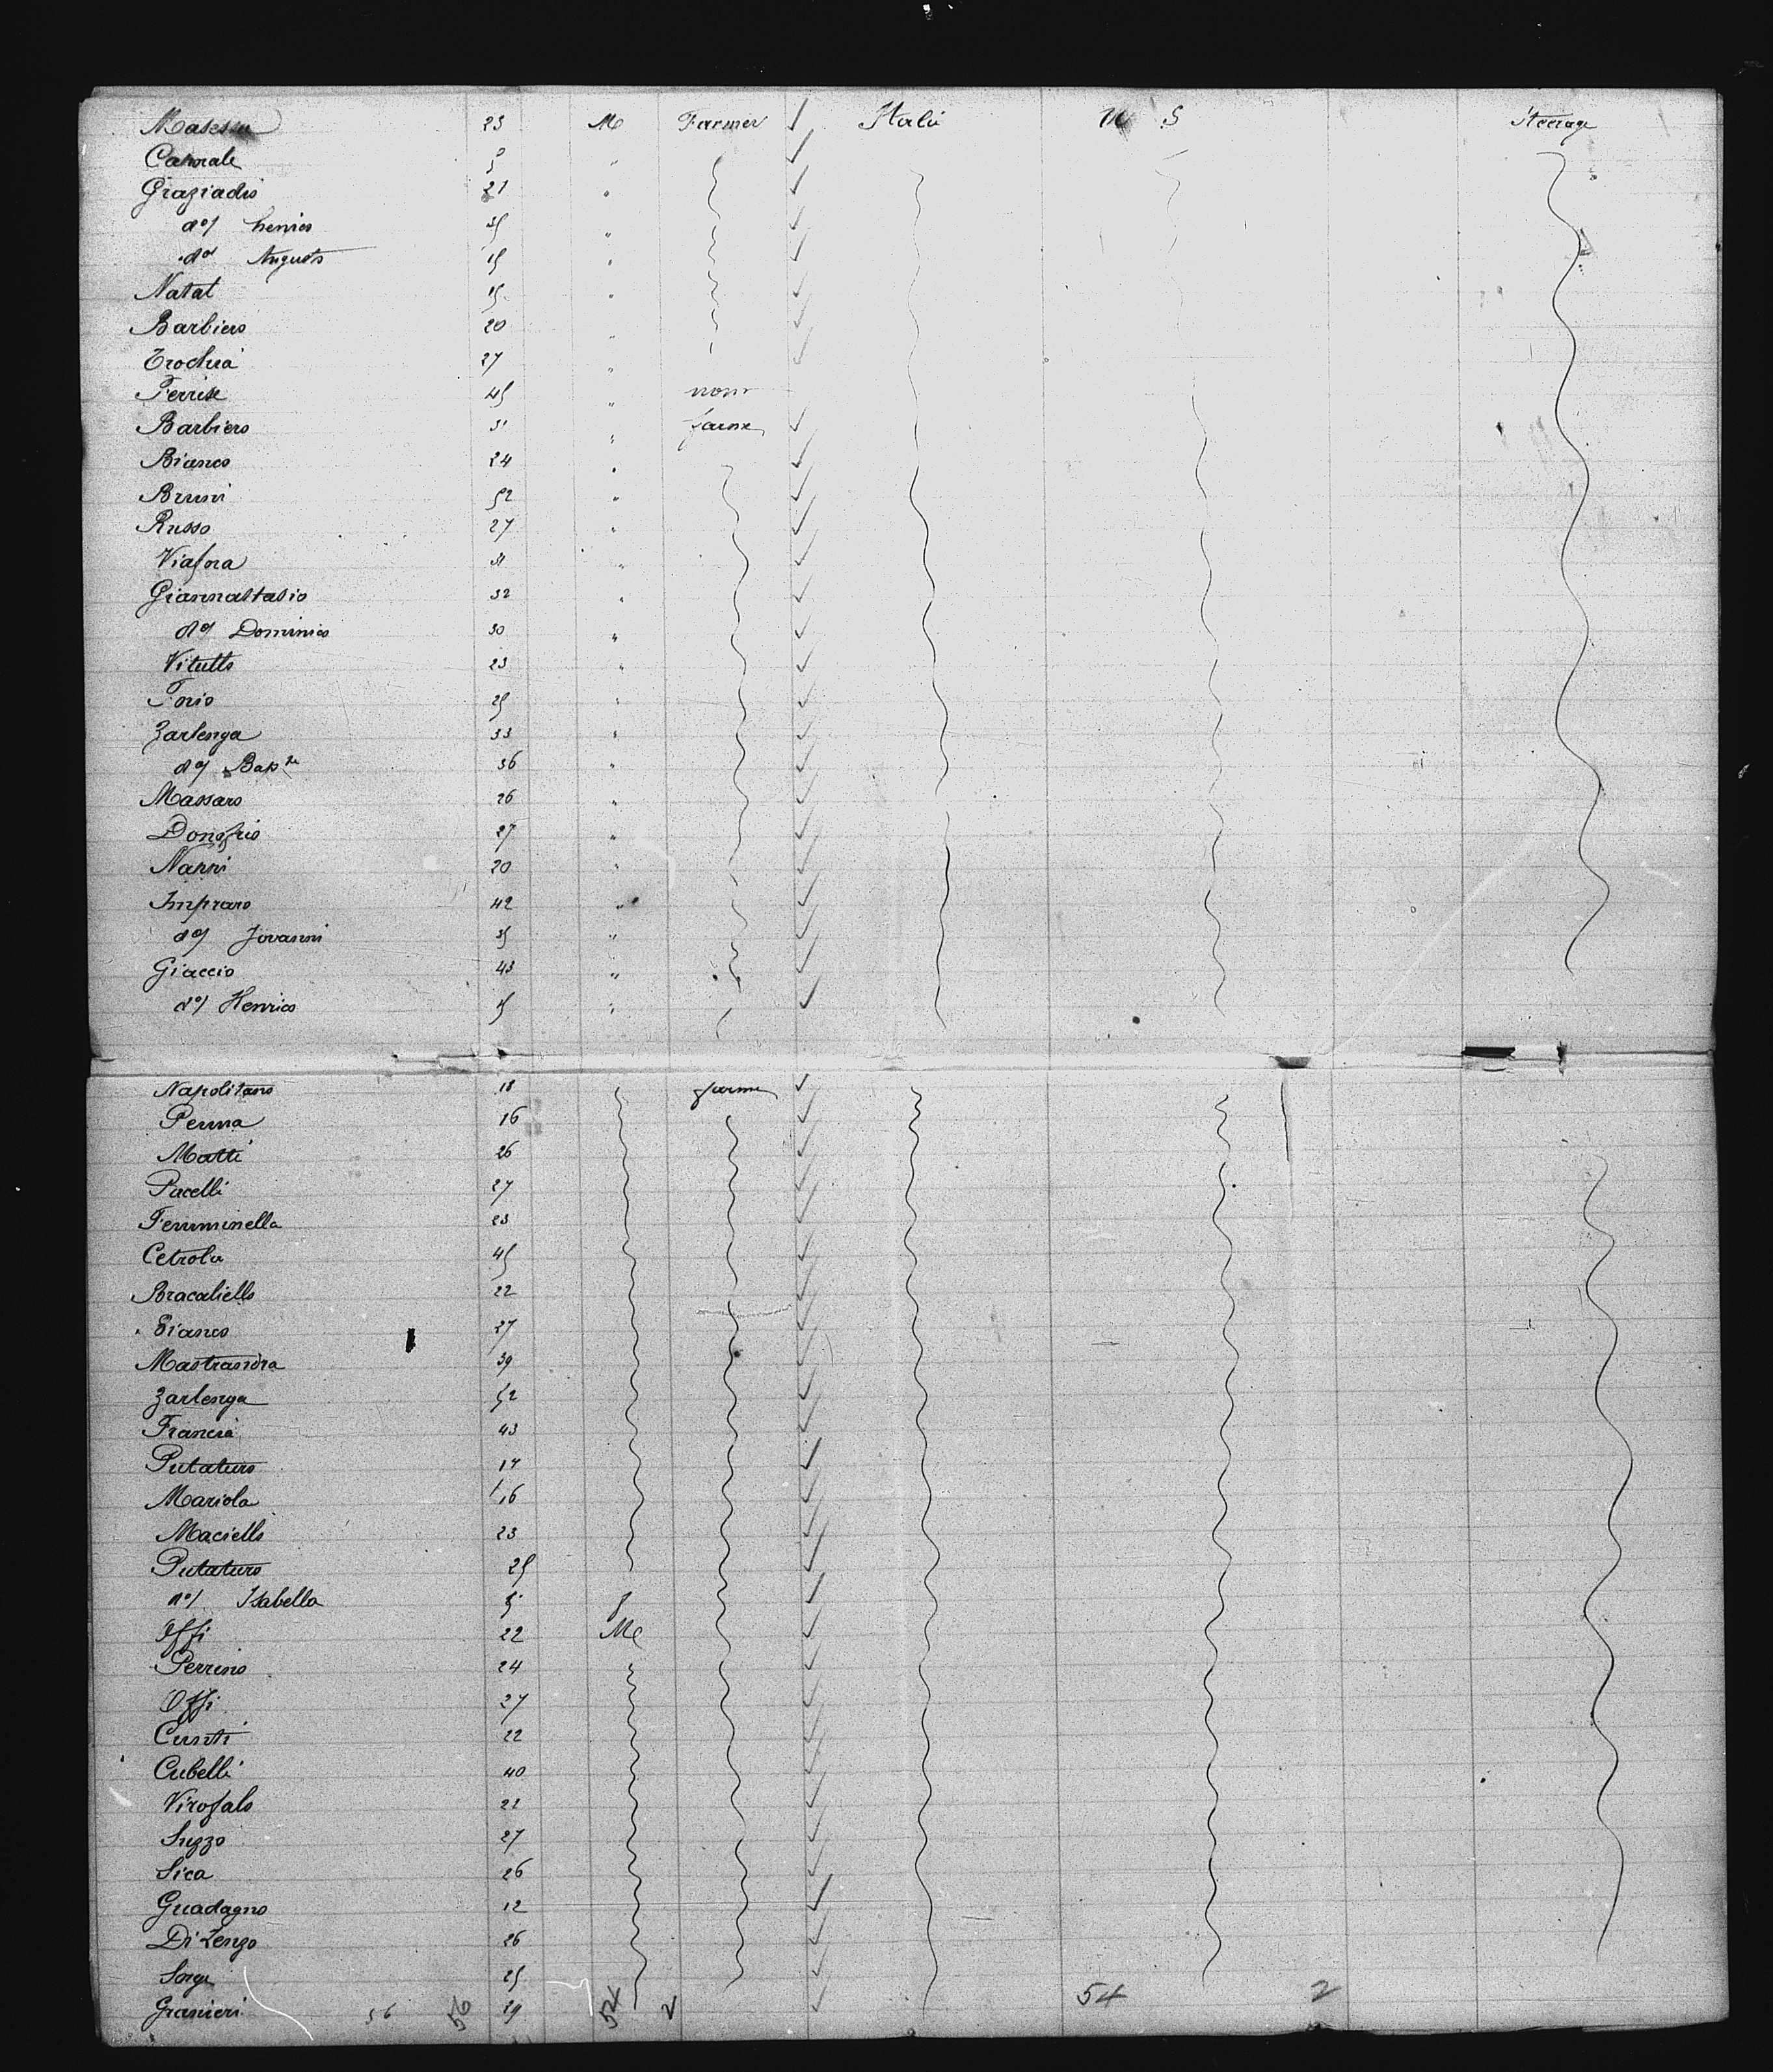 23 M Farmer Itali U S Steerage
"
Graziadio 21 "
do/ "
do Augusto 15 "
Natal 15 "
Barbiero 20 "
27 "
45 " none
Barbiero 31 " farme
Bianco 24 "
Bruni 52 "
Russo 27 "
Viafora 31 "
Giannastasio 32 "
do/ Dominico 30 "
Vitutto 23 "
Torio 25 "
Zarlenga 33 "
do/ 36 "
Massaro 26 "
Donofrio 27 "
Nanni 20 "
Impraro 42 "
do/ Jovanni 35 "
Giaccio 43 "
do/ Henrico "
Napolitano 18 farme
Penna 16
Matti 26
Pacelli 27
Femminella 23
Cetrola 45
Bracaliello 22
Bianco 27
Mastrandra 39
Zarlenga 52
Francia 43
Putaturo 14
Mariola 16
Maciello 23
Putaturo 25
do/ Isabella f
Offi 22 M
Perrino 24
Offi 27
Curiti 22
Cubelli 40
Virofalo 22
Suzzo 27
Sica 26
Guadagno 12
Di Lenzo 26
Sorge 25 54 2
Granieri 56 56 29 54 2